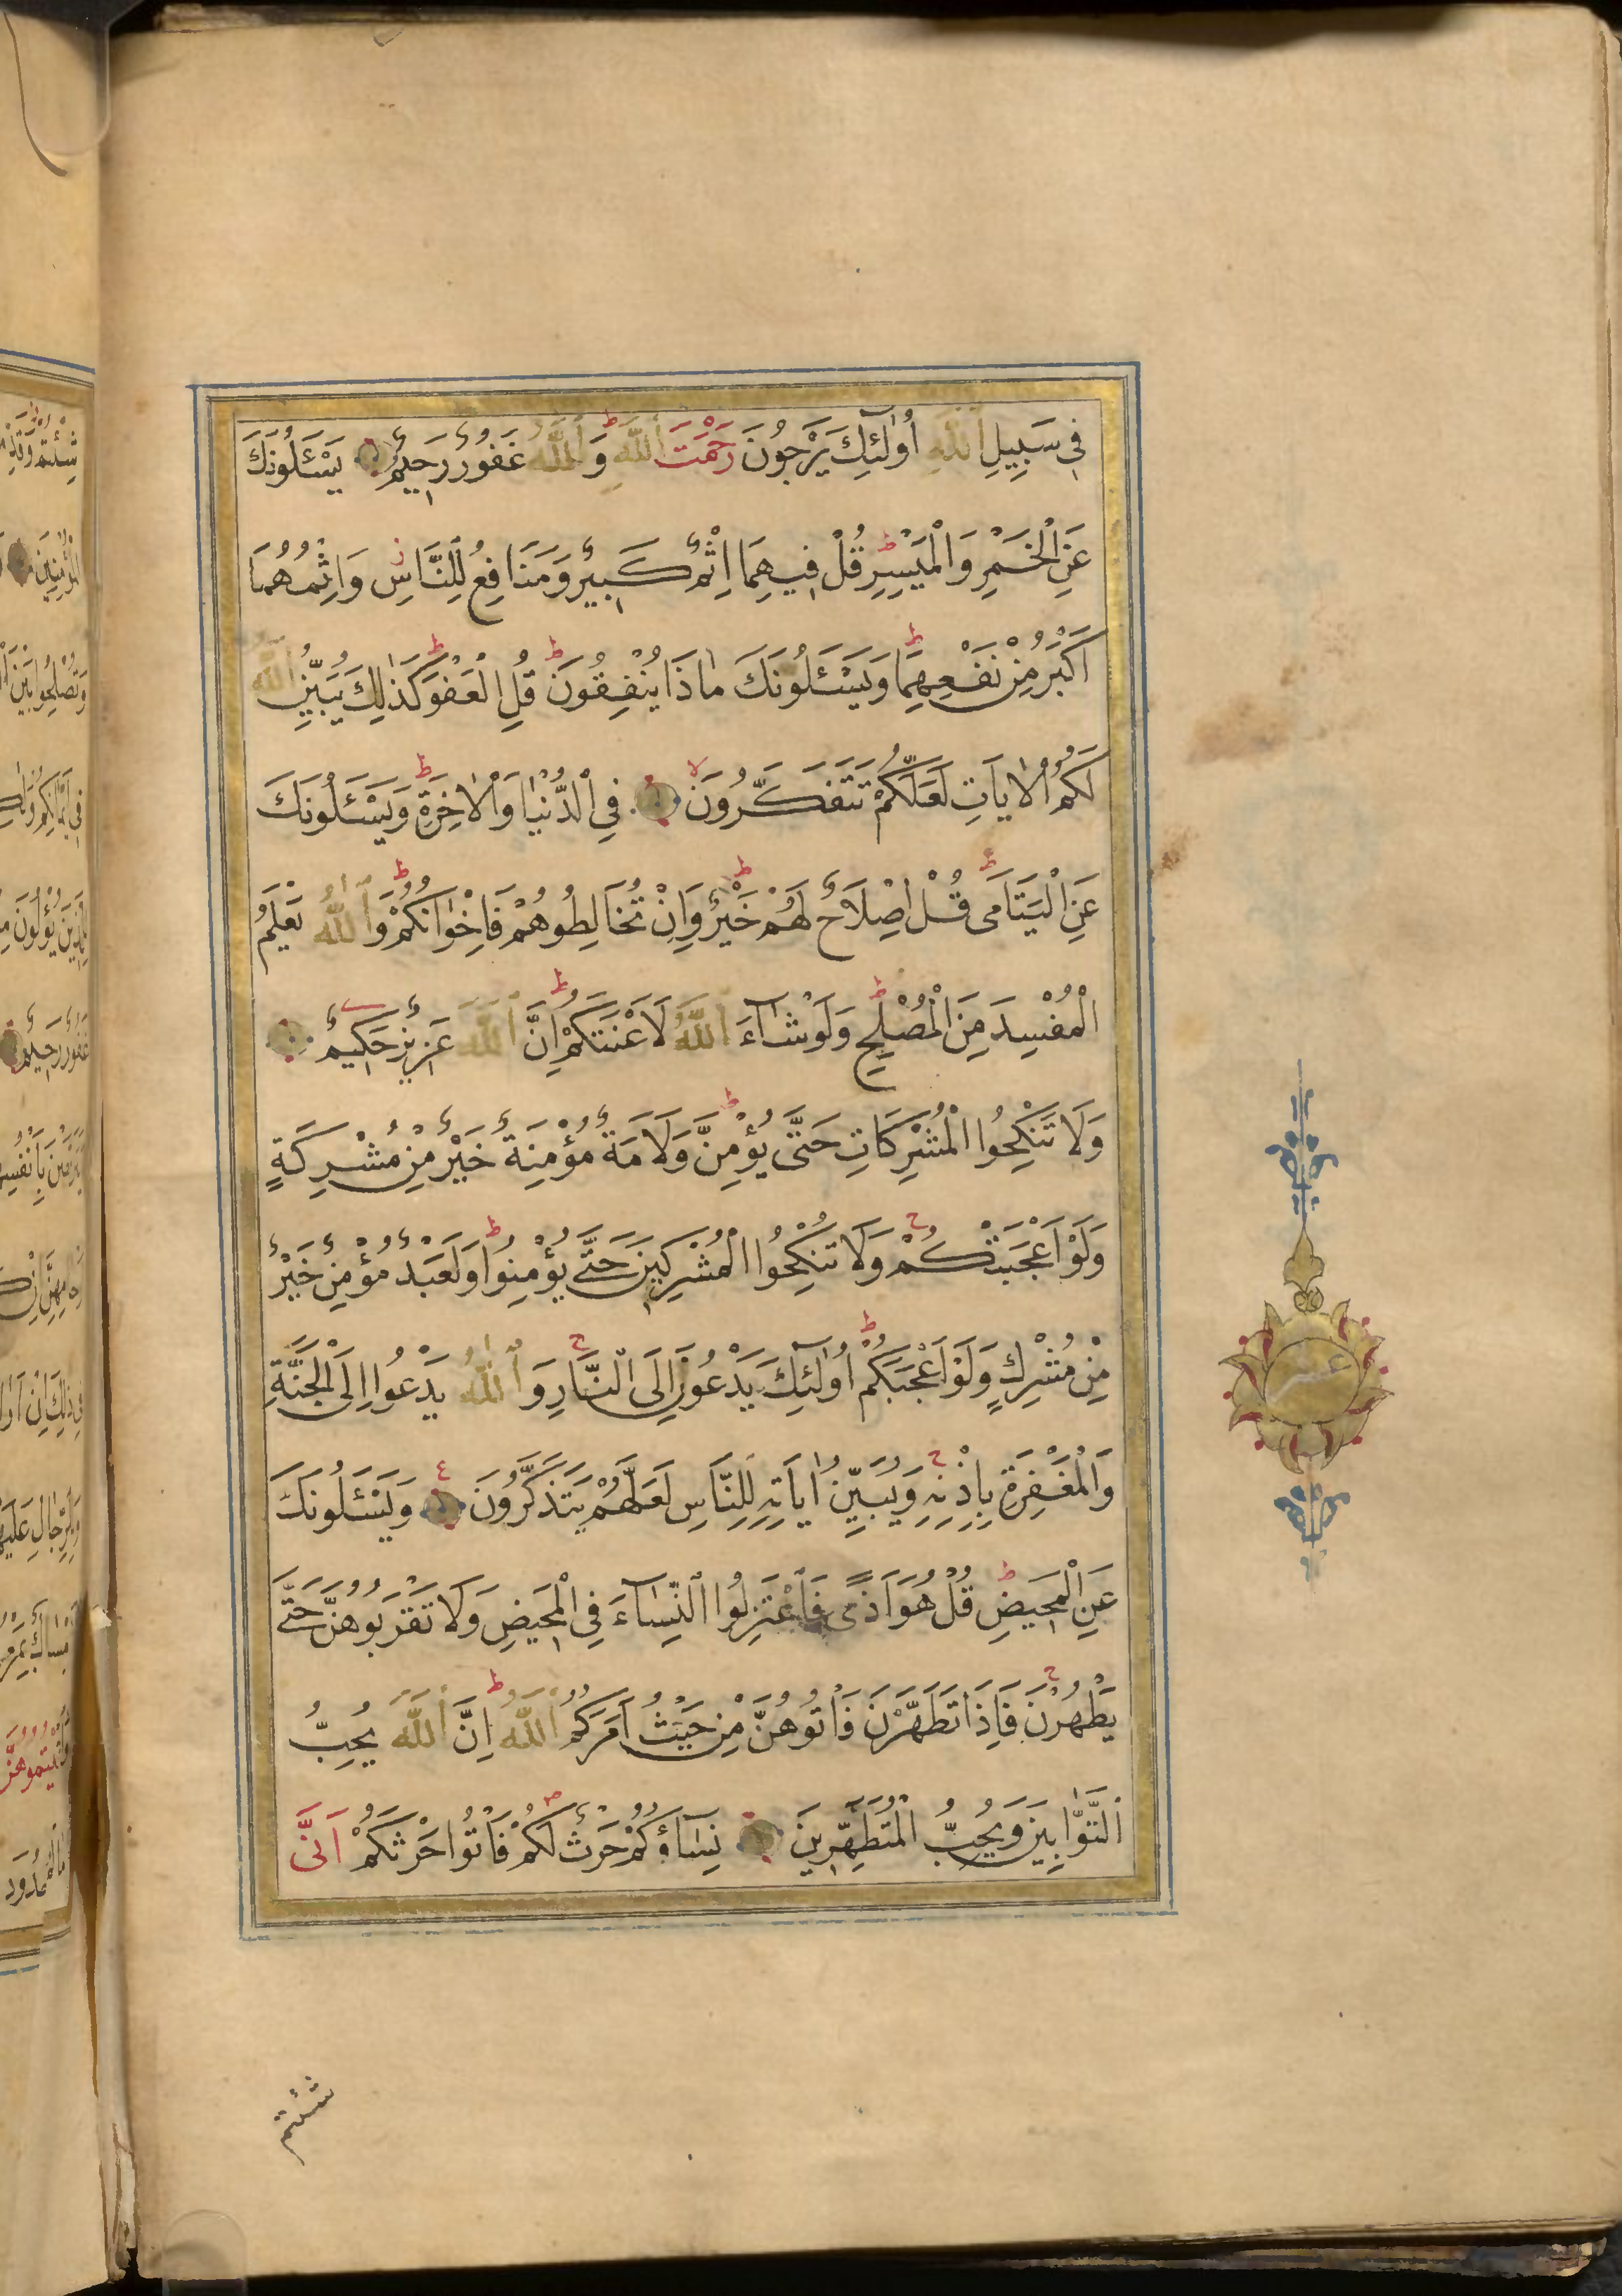 فِي سَبِيلِ اللّٰهِ اُولٰٓئِكَ يَرْجُونَ رَحْمَتَ اللّٰهِ ط وَاللّٰهُ غَفُورٌ رَحِيمٌ يَسْـَٔلُونَكَ
عَنِ الْخَمْرِ وَالْمَيْسِرِ ط قُلْ فِيهِمَا اِثْمٌ كَبِيرٌ وَمَنَافِعُ لِلنَّاسِ ز وَاِثْمُهُمَا
اَكْبَرُ مِنْ نَفْعِهِمَا ط وَيَسْـَٔلُونَكَ مَاذَا يُنْفِقُونَ ط قُلِ الْعَفْوَ ط كَذٰلِكَ يُبَيِّنُ اللّٰهُ
لَكُمُ الْاٰيَاتِ لَعَلَّكُمْ تَتَفَكَّرُونَ لا فِي الدُّنْيَا وَالْاٰخِرَةِ ط وَيَسْـَٔلُونَكَ
عَنِ الْيَتَامَى ط قُلْ اِصْلَاحٌ لَهُمْ خَيْرٌ ط وَاِنْ تُخَالِطُوهُمْ فَاِخْوَانُكُمْ ط وَاللّٰهُ يَعْلَمُ
الْمُفْسِدَ مِنَ الْمُصْلِحِ ط وَلَوْ شَآءَ اللّٰهُ لَاَعْنَتَكُمْ ط اِنَّ اللّٰهَ عَزِيزٌ حَكِيمٌ
وَلَا تَنْكِحُوا الْمُشْرِكَاتِ حَتَّى يُؤْمِنَّ ط وَلَاَمَةٌ مُؤْمِنَةٌ خَيْرٌ مِنْ مُشْرِكَةٍ
وَلَوْ اَعْجَبَتْكُمْ ج وَلَا تُنْكِحُوا الْمُشْرِكِينَ حَتَّى يُؤْمِنُوا ط وَلَعَبْدٌ مُؤْمِنٌ خَيْرٌ
مِنْ مُشْرِكٍ وَلَوْ اَعْجَبَكُمْ ط اُولٰٓئِكَ يَدْعُونَ اِلَى النَّارِ ج وَاللّٰهُ يَدْعُوا اِلَى الْجَنَّةِ
وَالْمَغْفِرَةِ بِاِذْنِهِ ج وَيُبَيِّنُ اٰيَاتِهِ لِلنَّاسِ لَعَلَّهُمْ يَتَذَكَّرُونَ ع وَيَسْـَٔلُونَكَ
عَنِ الْمَحِيضِ ط قُلْ هُوَ اَذًى فَاعْتَزِلُوا النِّسَآءَ فِي الْمَحِيضِ وَلَا تَقْرَبُوهُنَّ حَتَّى
يَطْهُرْنَ ج فَاِذَا تَطَهَّرْنَ فَاْتُوهُنَّ مِنْ حَيْثُ اَمَرَكُمُ اللّٰهُ ط اِنَّ اللّٰهَ يُحِبُّ
التَّوَّابِينَ وَيُحِبُّ الْمُتَطَهِّرِينَ نِسَآؤُكُمْ حَرْثٌ لَكُمْ ص فَاْتُوا حَرْثَكُمْ اَنَّى
عشر
شئتم